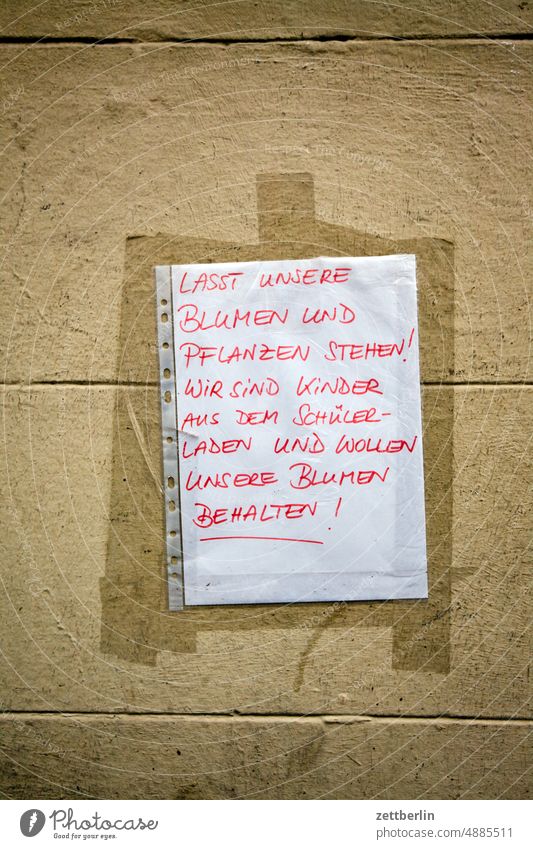 LASST UNSERE
BLUMEN UND
PFLANZEN STEHEN!
WIR SIND KINDER
AUS DEM SCHÜLER-
LADEN UND WOLLEN
UNSERE BLUMEN
BEHALTEN!
PHOTOCASE
Good for your eyes.
zettberlin
photocase.com № 4885511